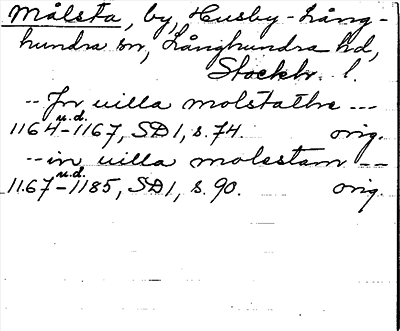 Målsta, by, Husby-Lång-
hundra sn, Långhundra hd,
Stockh. l.
-- Jn villa molstathe ---
u.d.
1164-1167, SD 1, s. 74. orig.
-- in villa molestam --
u.d.
1167-1185, SD 1, s. 90. orig.